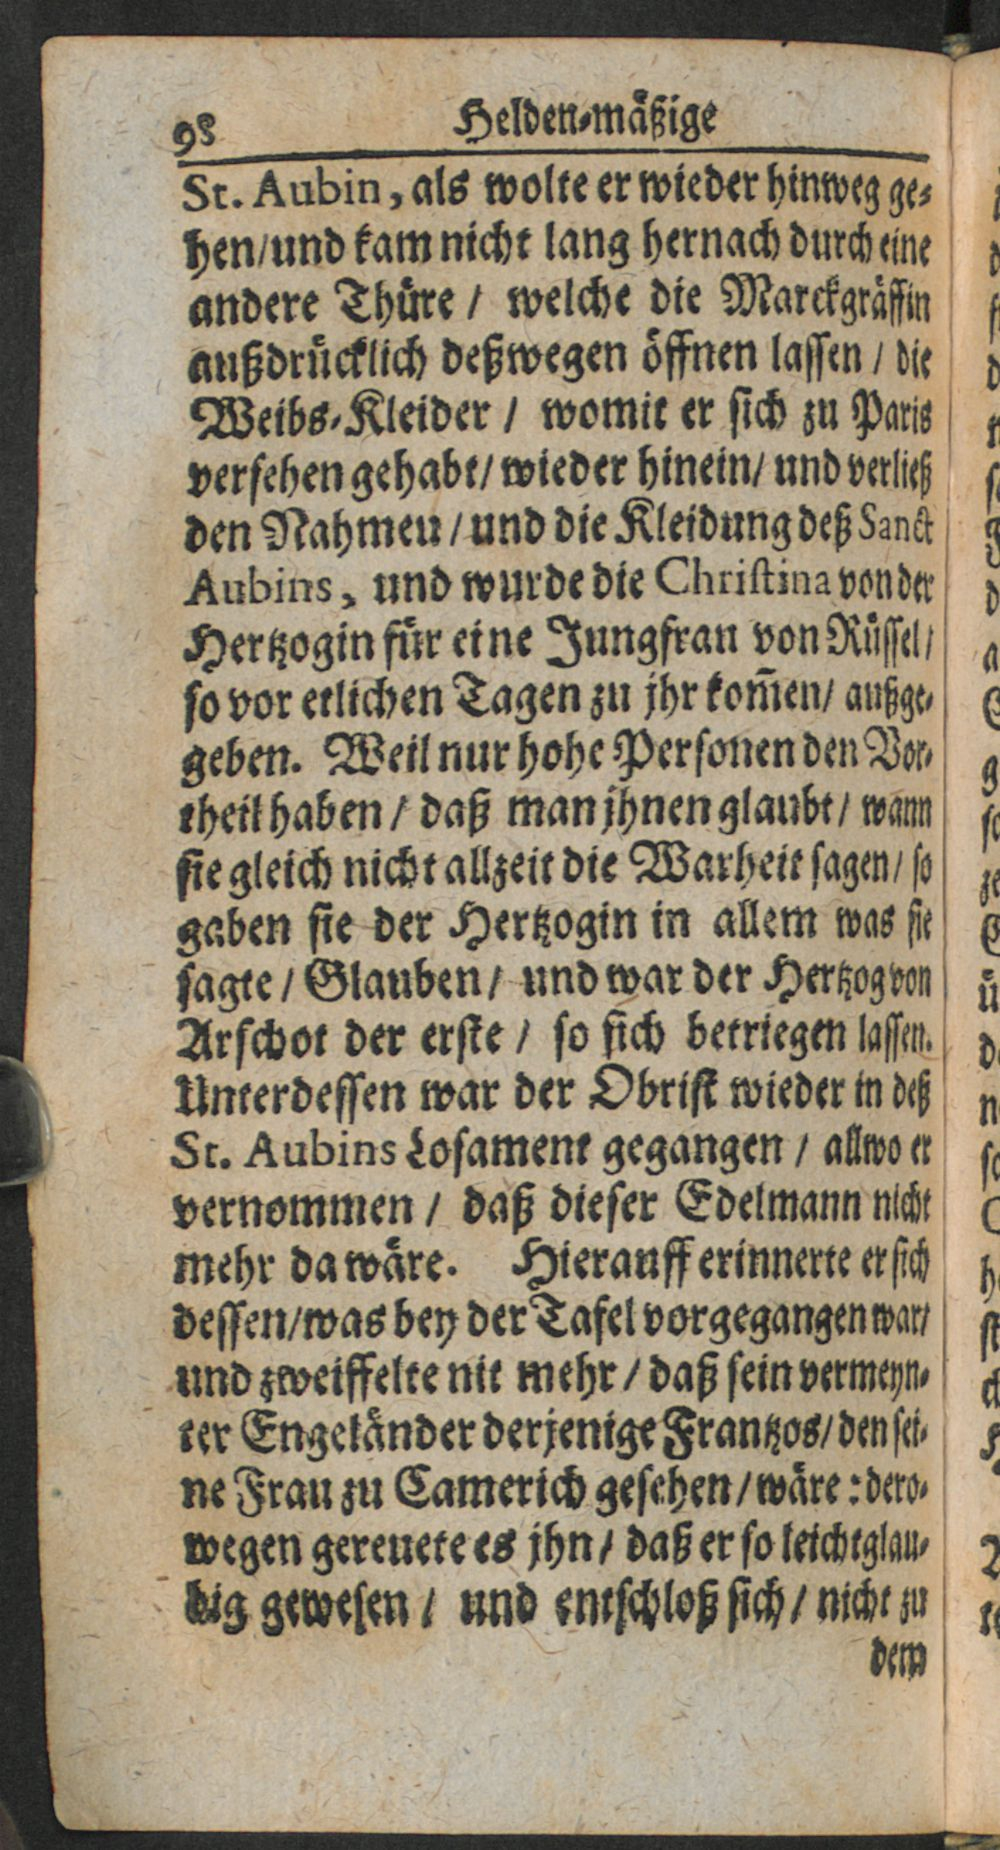 98 Helden-mäßige
St. Aubin, als wolte er wieder hinweg ge-
hen/und kam nicht lang hernach durch eine
andere Thüre / welche die Marckgräffin
außdrücklich deßwegen öffnen lassen / die
Weibs-Kleider / womit er sich zu Paris
versehen gehabt/ wieder hinein/ und verließ
den Nahmen / und die Kleidung deß Sanct
Aubins, und wurde die Christina von der
Hertzogin für eine Jungfrau von Rüssel/
so vor etlichen Tagen zu jhr kom̃en/ außge-
geben. Weil nur hohe Personen den Vor-
theil haben / daß man jhnen glaubt / wann
sie gleich nicht allzeit die Warheit sagen/ so
gaben sie der Hertzogin in allem was sie
sagte / Glauben / und war der Hertzog von
Arschot der erste / so sich betriegen lassen.
Unterdessen war der Obrist wieder in deß
St. Aubins Losament gegangen / allwo er
vernommen / daß dieser Edelmann nicht
mehr da wäre. Hierauff erinnerte er sich
dessen/was bey der Tafel vorgegangen war/
und zweiffelte nit mehr / daß sein vermeyn-
ter Engeländer derjenige Frantzos/ den sei-
ne Frau zu Camerich gesehen / wäre : dero-
wegen gereuete es jhn / daß er so leichtglau-
big gewesen / und entschloß sich / nicht zu
dem